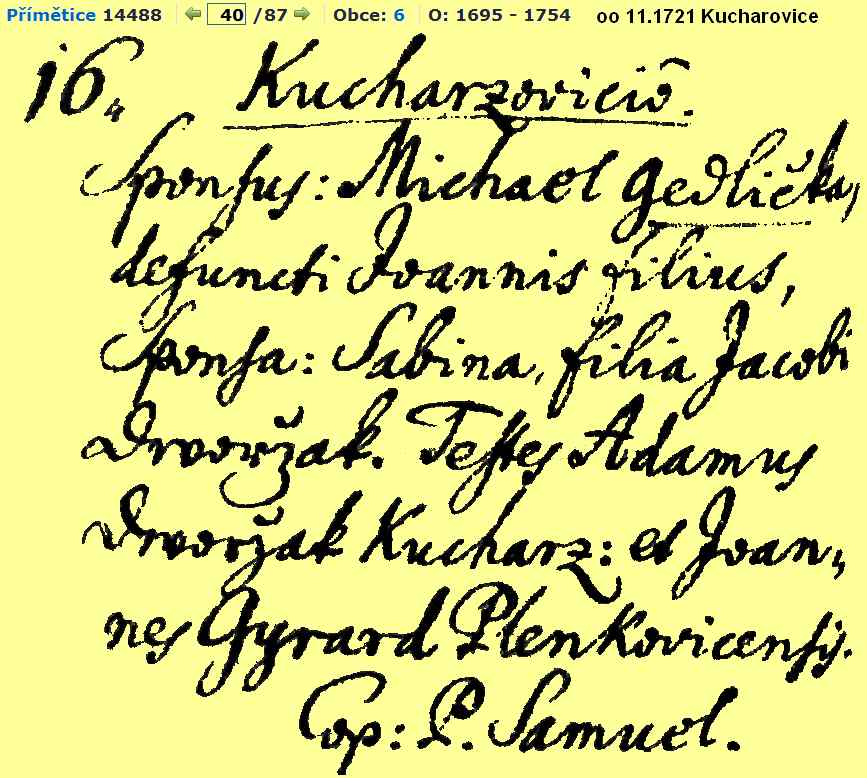 Přímětice 14488 40 /87 Obce: 6 O: 1695 - 1754 oo 11.1721 Kucharovice
16. Kucharzoviciô.
Sponsus: Michael Gedlička,
defuncti Joannis filius,
Sponsa: Sabina, filia Jacobi
Dworžak. Testes Adamus
Dworžak Kucharz: et Joan„
nes Gyrard Plenkovicensis.
Cop: P. Samuel.